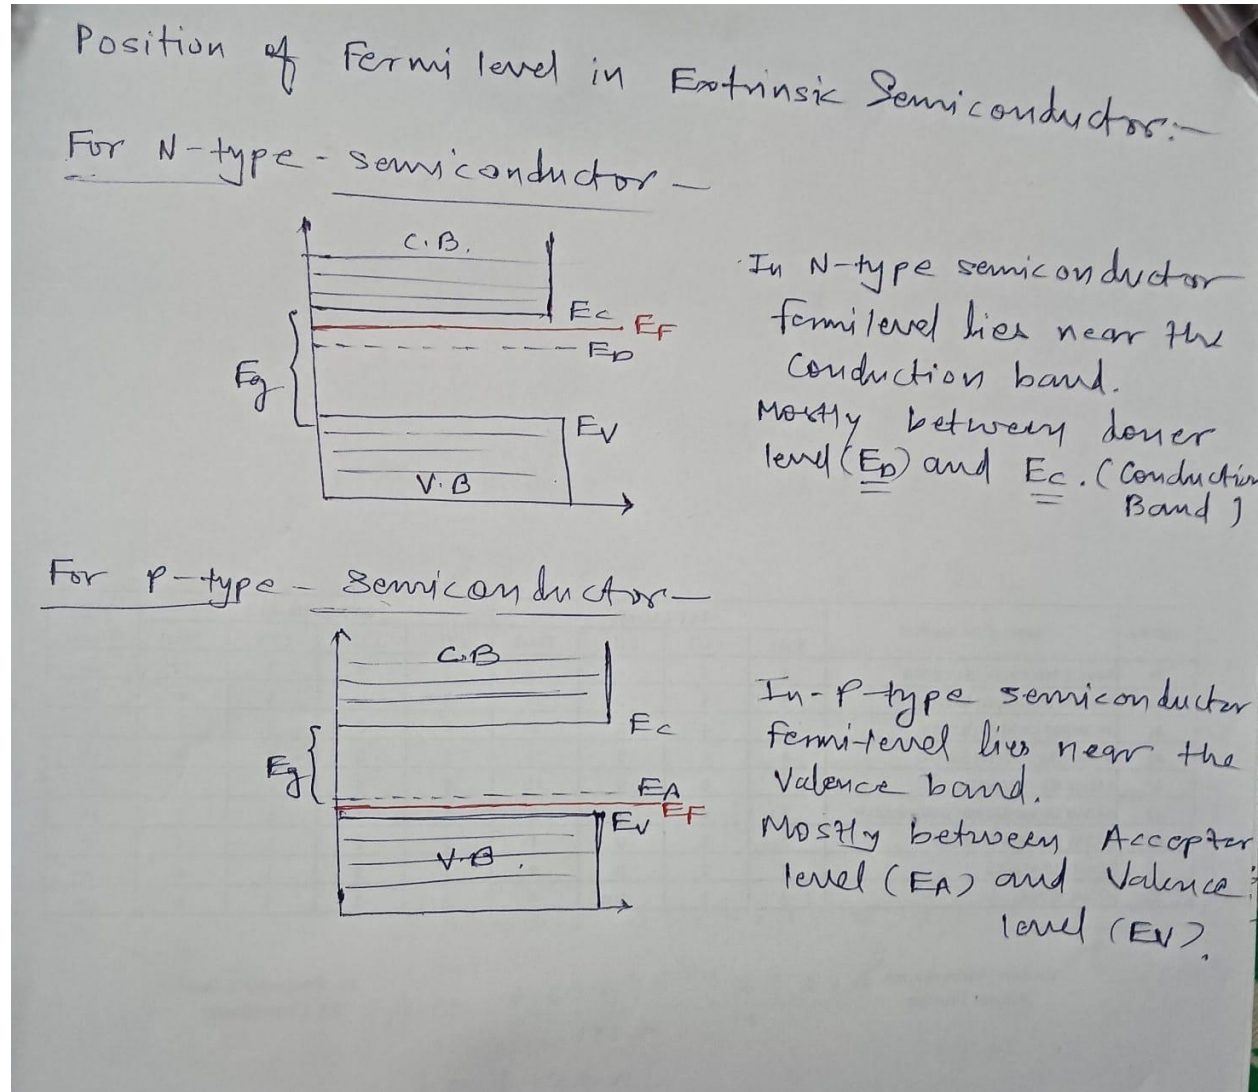 Position of Fermi level in Extrinsic Semiconductor:-
For N-type - semiconductor -
C.B.
Ec
EF
ED
Eg
EV
V.B
In N-type semiconductor
fermilevel lies near the
Conduction band.
Mostly between doner
level (ED) and Ec. (Conduction
Band)
For P-type - Semiconductor -
C.B
Ec
Eg
EA
EF
EV
V.B.
In - P-type semiconductor
fermi-level lies near the
Valence band.
Mostly between Accepter
level (EA) and Valence
level (EV).